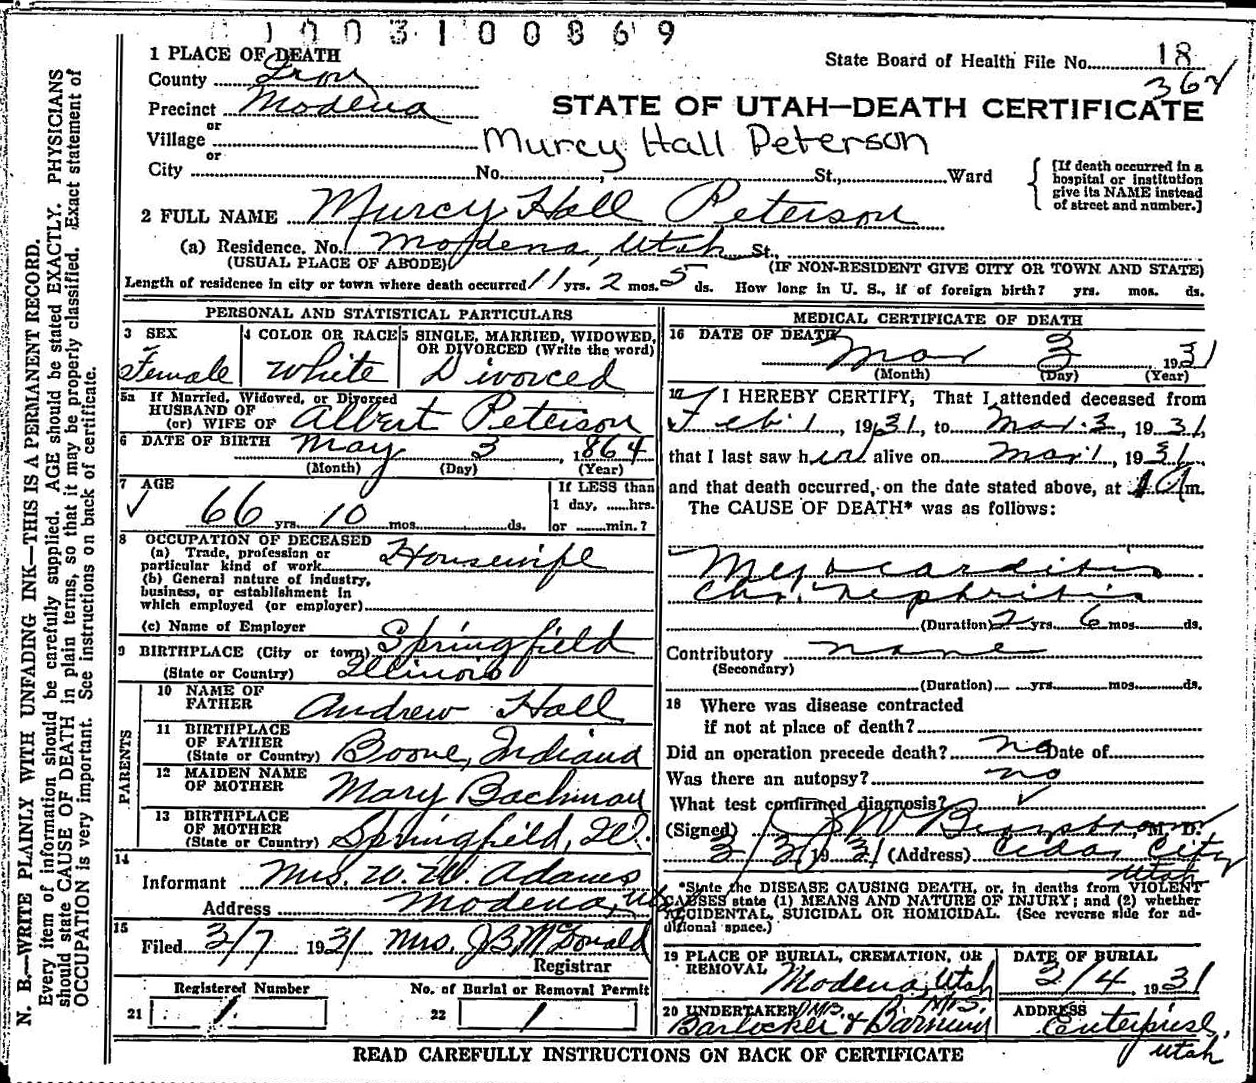 1003100869
1 PLACE OF DEATH
State Board of Health File No. 18
County Iron
362
Precinct Modena
STATE OF UTAH—DEATH CERTIFICATE
or
Village
Murcy Hall Peterson
or
City No. , St., Ward
[If death occurred in a
hospital or institution
give its NAME instead
of street and number.]
2 FULL NAME Murcy Hall Peterson
(a) Residence. No. Modena, Utah St.,
(USUAL PLACE OF ABODE) (IF NON-RESIDENT GIVE CITY OR TOWN AND STATE)
Length of residence in city or town where death occurred 11 yrs. 2 mos. 5 ds. How long in U. S., if of foreign birth? yrs. mos. ds.
PERSONAL AND STATISTICAL PARTICULARS
3 SEX
Female
4 COLOR OR RACE
White
5 SINGLE, MARRIED, WIDOWED,
OR DIVORCED (Write the word)
Divorced
5a If Married, Widowed, or Divorced
HUSBAND OF
(or) WIFE OF Albert Peterson
6 DATE OF BIRTH May 3, 1864
(Month) (Day) (Year)
7 AGE
66 yrs. 10 mos. ds.
If LESS than
1 day, ......hrs.
or ......min.?
8 OCCUPATION OF DECEASED
(a) Trade, profession or
particular kind of work Housewife
(b) General nature of industry,
business, or establishment in
which employed (or employer)
(c) Name of Employer
9 BIRTHPLACE (City or town) Springfield
(State or Country) Illinois
PARENTS
10 NAME OF
FATHER Andrew Hall
11 BIRTHPLACE
OF FATHER
(State or Country) Boone, Indiana
12 MAIDEN NAME
OF MOTHER Mary Bachman
13 BIRTHPLACE
OF MOTHER
(State or Country) Springfield, Ill.
14
Informant Mrs. W. Adams
Address Modena, Ut
15
Filed 3/7 1931 Mrs. J B McDonald
Registrar
Registered Number
21 1
No. of Burial or Removal Permit
22 1
MEDICAL CERTIFICATE OF DEATH
16 DATE OF DEATH
Mar 3 1931
(Month) (Day) (Year)
17 I HEREBY CERTIFY, That I attended deceased from
Feb 1, 1931, to Mar. 3, 1931,
that I last saw her alive on Mar 1, 1931
and that death occurred, on the date stated above, at m.
The CAUSE OF DEATH* was as follows:
Myocarditis
Chr. Nephritis
(Duration) 2 yrs. 6 mos. ds.
Contributory none
(Secondary)
(Duration) yrs. mos. ds.
18 Where was disease contracted
if not at place of death?
Did an operation precede death? no Date of
Was there an autopsy? no
What test confirmed diagnosis?
(Signed) J W Bergstrom, M. D.
3/3/1931 (Address) Cedar City
Utah
*State the DISEASE CAUSING DEATH, or, in deaths from VIOLENT
CAUSES state (1) MEANS AND NATURE OF INJURY; and (2) whether
ACCIDENTAL, SUICIDAL OR HOMICIDAL. (See reverse side for ad-
ditional space.)
19 PLACE OF BURIAL, CREMATION, OR
REMOVAL Modena, Utah
DATE OF BURIAL
3/4, 1931
20 UNDERTAKER Mrs. Mrs.
Barlocker & Barnum
ADDRESS
Enterprise,
Utah
READ CAREFULLY INSTRUCTIONS ON BACK OF CERTIFICATE
N. B.—WRITE PLAINLY WITH UNFADING INK—THIS IS A PERMANENT RECORD.
Every item of information should be carefully supplied. AGE should be stated EXACTLY. PHYSICIANS
should state CAUSE OF DEATH in plain terms, so that it may be properly classified. Exact statement of
OCCUPATION is very important. See instructions on back of certificate.